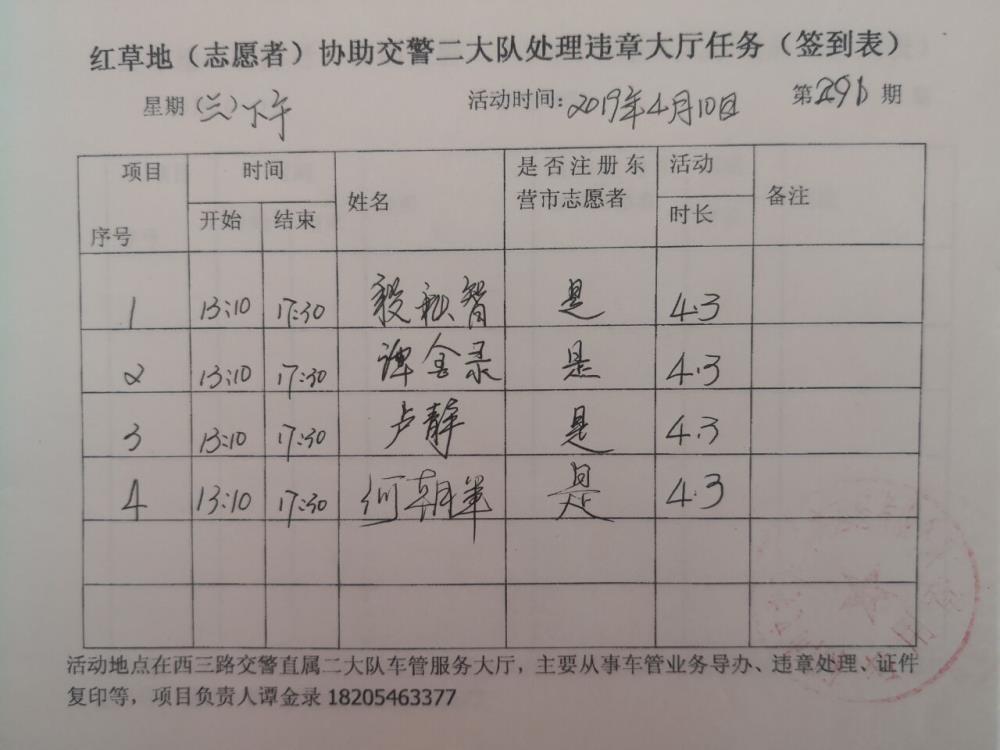 红草地（志愿者）协助交警二大队处理违章大厅任务（签到表）
星期(三)下午 活动时间:2019年4月10日 第291期
项目 时间 姓名 是否注册东营市志愿者 活动时长 备注
序号 开始 结束
1 13:10 17:30 毅秋智 是 4.3
2 13:10 17:30 谭金录 是 4.3
3 13:10 17:30 卢静 是 4.3
4 13:10 17:30 何朝军 是 4.3
活动地点在西三路交警直属二大队车管服务大厅，主要从事车管业务导办、违章处理、证件
复印等，项目负责人谭金录 18205463377